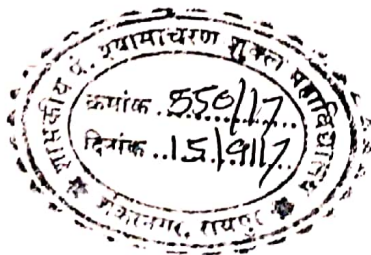 शासकीय पं. श्यामाचरण शुक्ल महाविद्यालय
क्रमांक 550/17
दिनांक 15/9/17
रायपुर